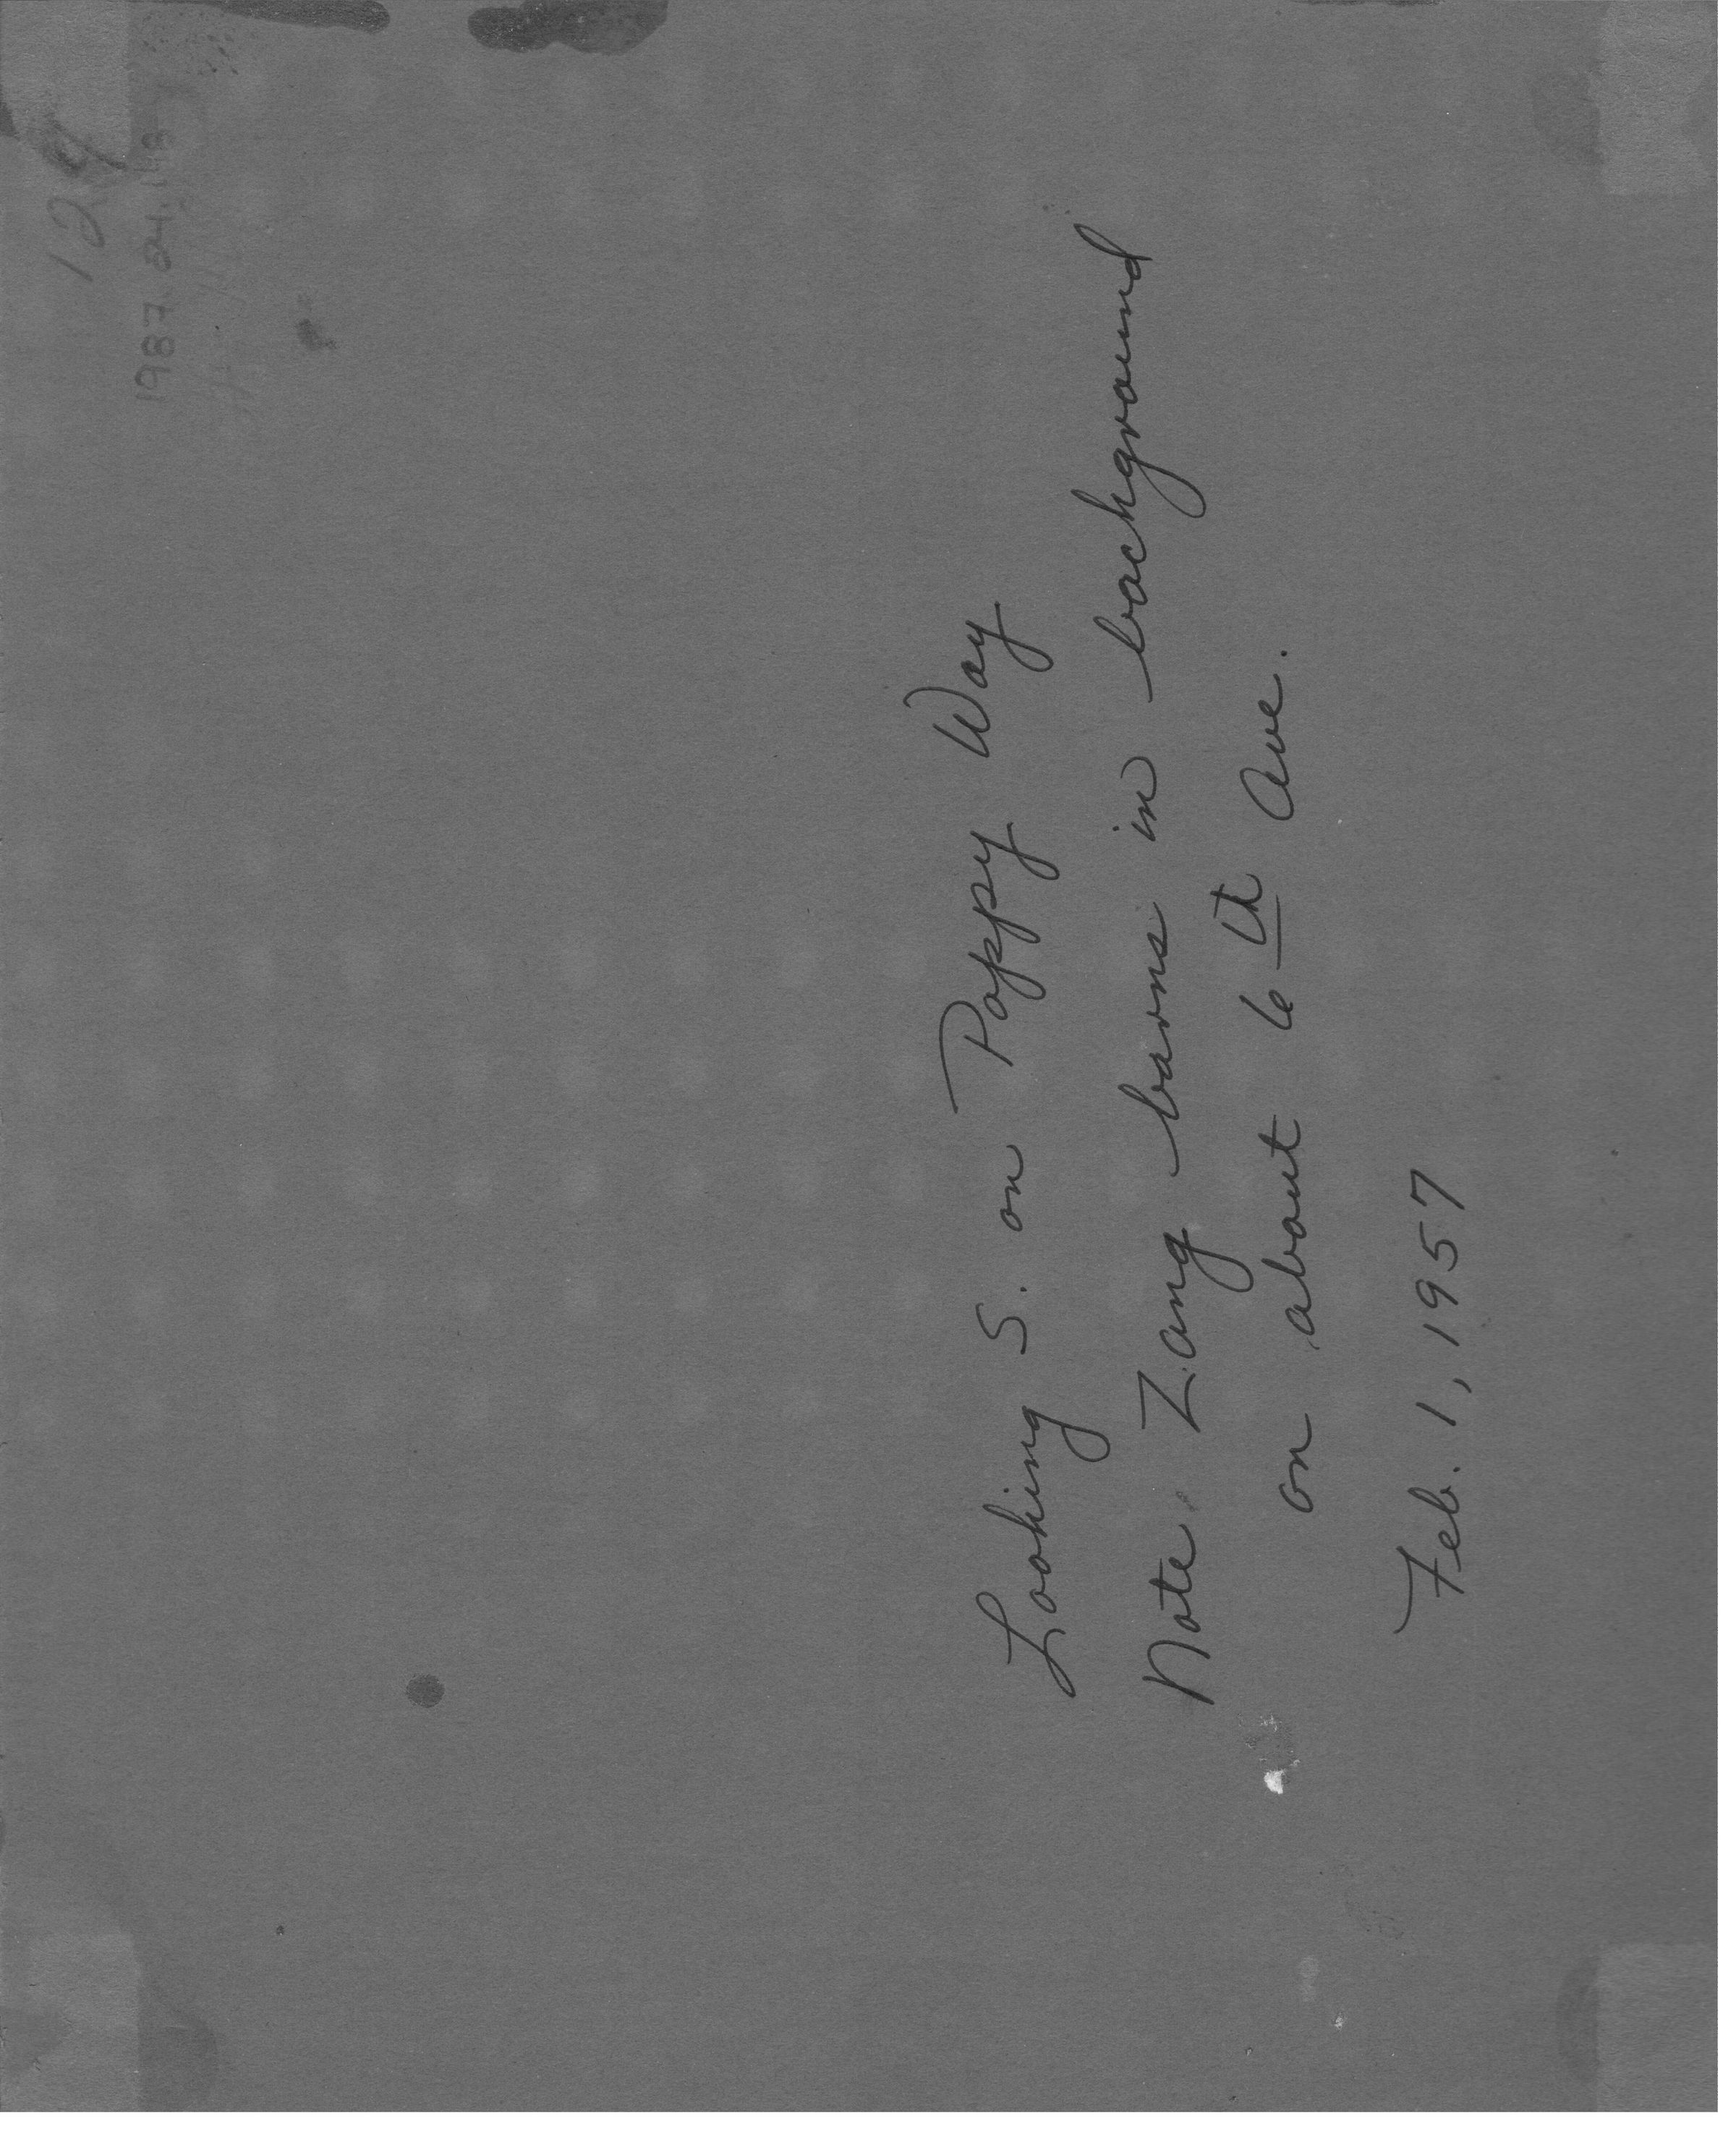 129
Looking S. on Poppy Way
Note Zang barns in background
on about 6th Ave.
Feb. 1, 1957